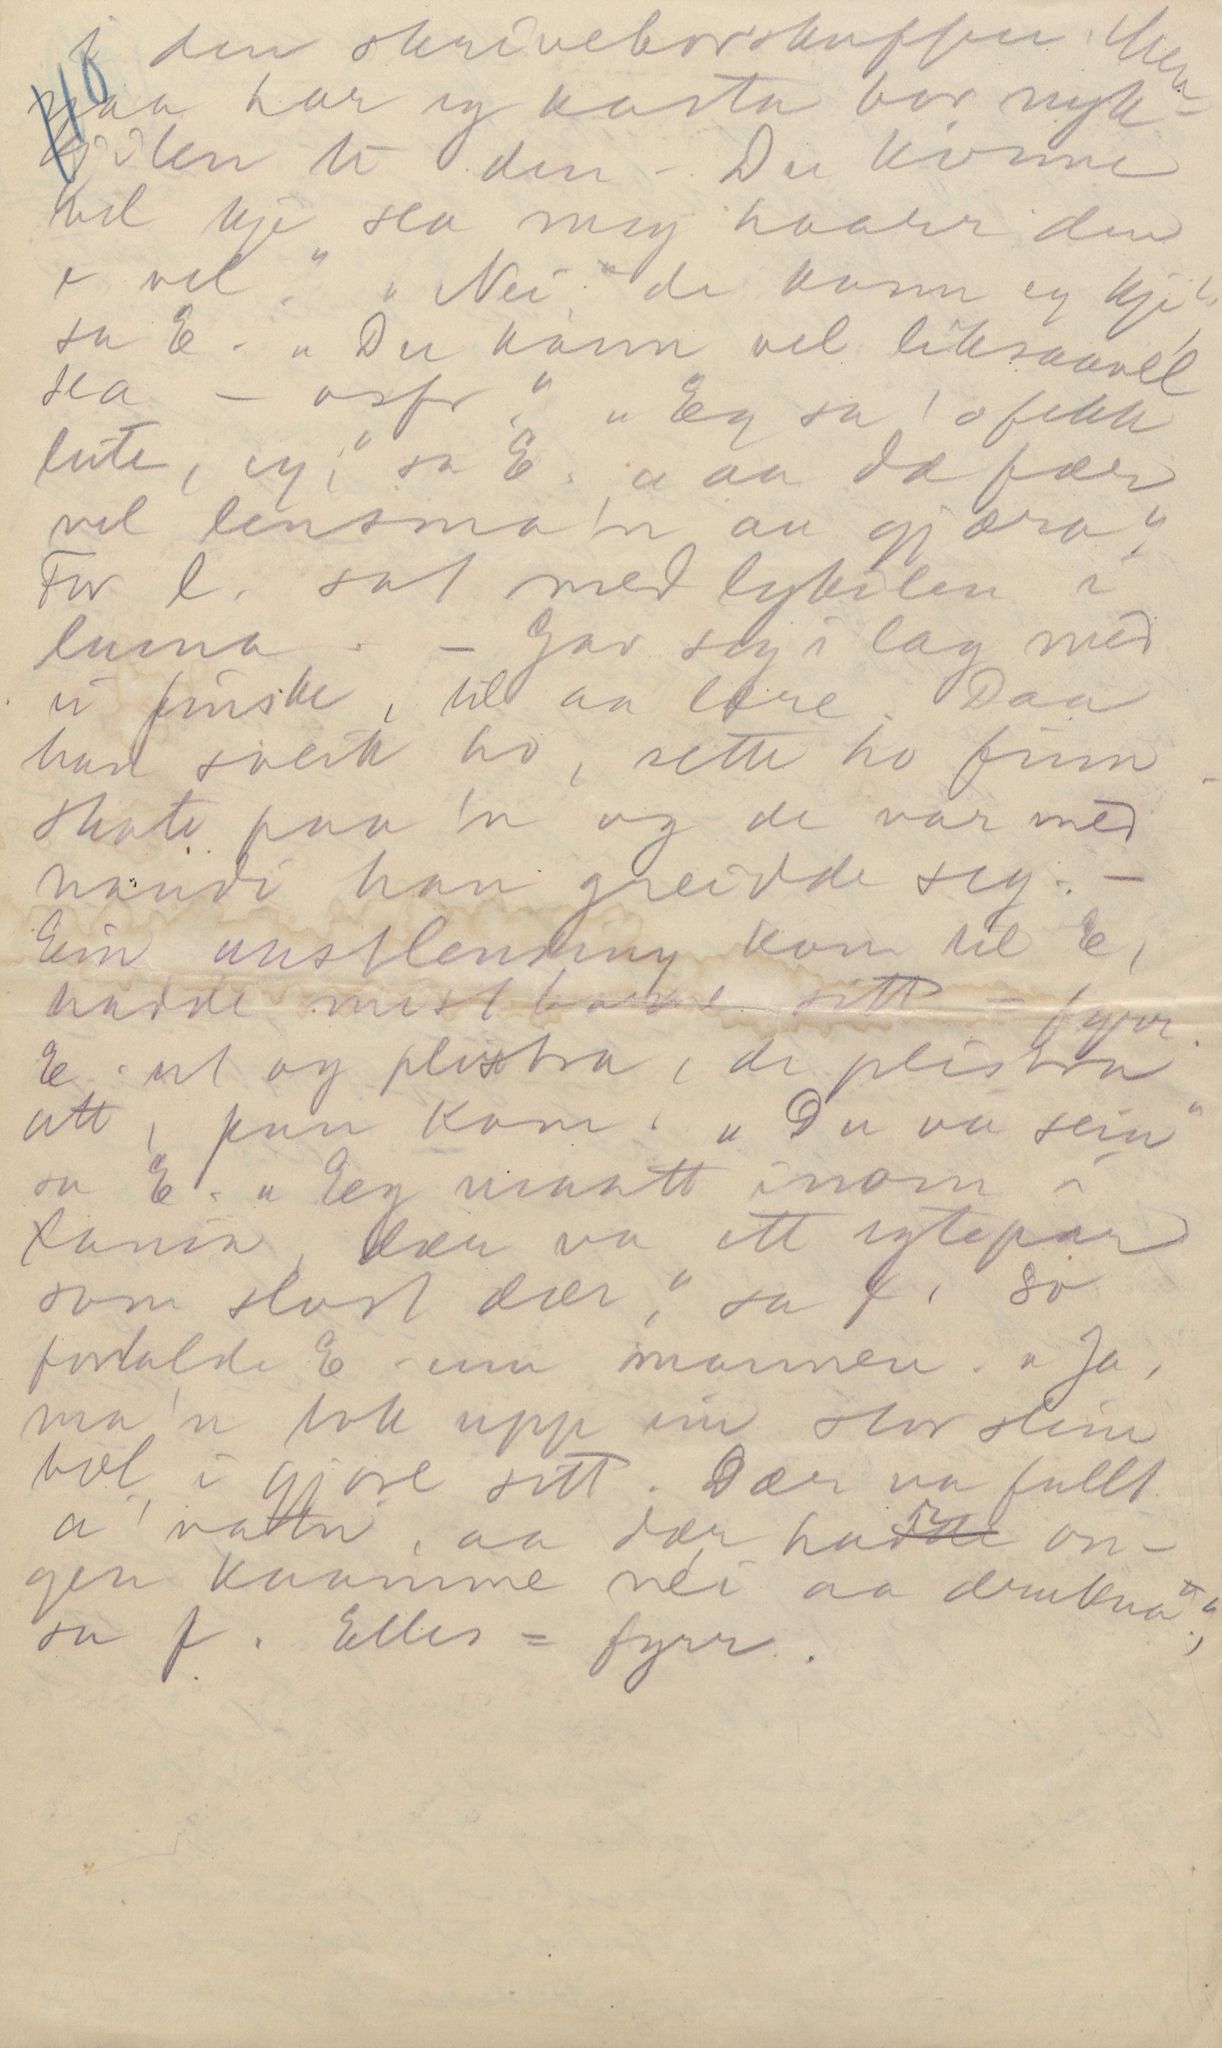 i den skriveborskuffen. Men
saa har eg kasta bor nyk-
kjilen te den - Du könne
vel kje sea meg haarr den
e vel." "Nei" de kann eg kje",
sa E. "Du kann vel liksaavel
sea - osfr." "Eg sa 'o fekk
lute, eg," sa E. "aa dæ fær
vel lensma'n aa gjæra".
For l. sat med lykilen i
luma. - Gav seg i lag med
ei finske, til aa lære. Daa
han sveik ho, sette ho finn-
skate paa 'n og de var med
naudi han greidde seg. -
Ein austlending kom til E,
hadde mist barnet sitt - fyrr.
E. ut og plistra, de plistra
att, kom. "Du va sein"
sa E. "Eeg maatt inom i
dær va ett egtepar
som slost dær," sa f. So
fortalde E. um mannen. "Ja,
ma'n tok upp ein stor stein
i gjøre sitt. Dær va fullt
a' vattn, aa dær ha on-
gen kaamme nei aa drukna",
sa f. Elles = fyrr.
118